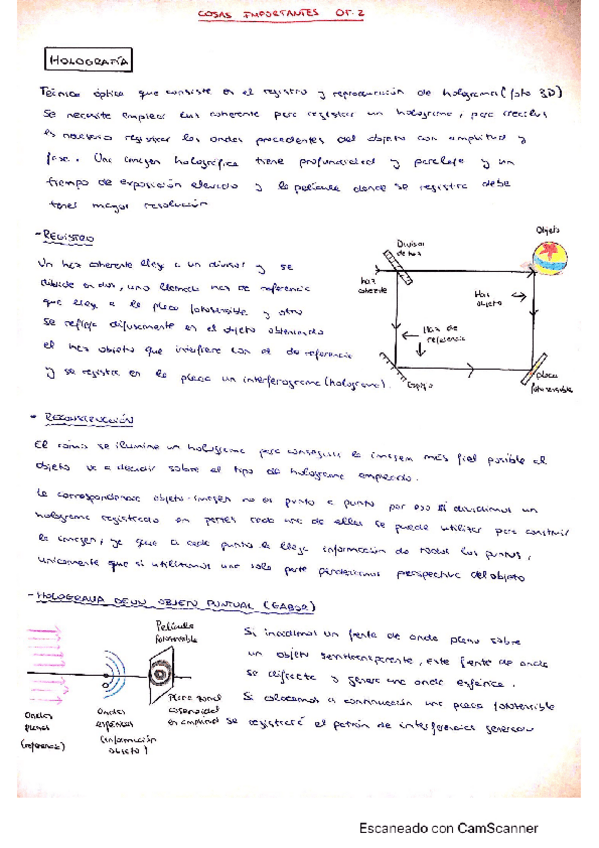 COSAS IMPORTANTES OT.2
HOLOGRAFÍA
Técnica óptica que consiste en el registro y reproducción de hologramas (foto 3D)
Se necesita emplear luz coherente para registrar un holograma, para crearlos
es necesario registrar las ondas procedentes del objeto con amplitud y
fase. Una imagen holográfica tiene profundidad y paralaje y un
tiempo de exposición elevado y la película donde se registra debe
tener mayor resolución
- REGISTRO
Un haz coherente llega a un divisor y se
divide en dos, uno llamado haz de referencia
que llega a la placa fotosensible y otro
se refleja difusamente en el objeto obteniendo
el haz objeto que interfiere con el de referencia
y se registra en la placa un interferograma (holograma).
Objeto
Divisor
de haz
haz
coherente
Haz
objeto
Haz de
referencia
Espejo
placa
fotosensible
- RECONSTRUCCIÓN
El cómo se ilumine un holograma para conseguir la imagen más fiel posible al
objeto va a decidir sobre el tipo de holograma empleado.
La correspondencia objeto-imagen no es punto a punto por eso si dividimos un
holograma registrado en partes cada una de ellas se puede utilizar para construir
la imagen, ya que a cada punto le llega información de todos los puntos,
únicamente que si utilizamos una sola parte perderíamos perspectiva del objeto
- HOLOGRAMA DE UN OBJETO PUNTUAL (GABOR)
Película
fotosensible
Ondas
planas
(referencia)
Ondas
esféricas
(información
objeto)
Placa zonal
cosenoidal
en amplitud
Si incidimos un frente de onda plano sobre
un objeto semitransparente, este frente de onda
se difracta y genera una onda esférica.
Si colocamos a continuación una placa fotosensible
se registrará el patrón de interferencias generan
Escaneado con CamScanner